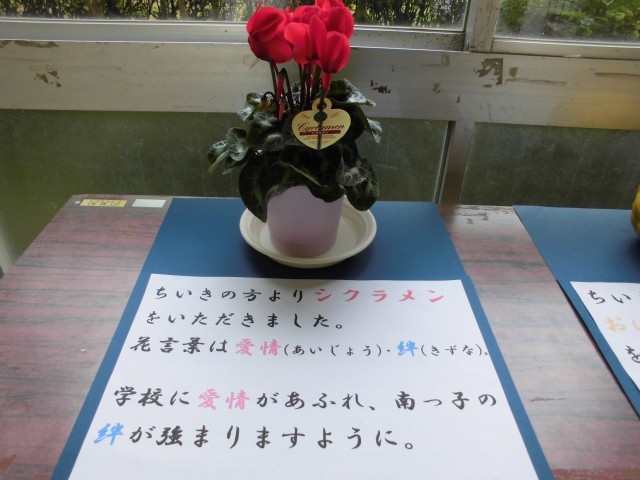 Cyclamen
ちいきの方よりシクラメン
をいただきました。
花言葉は愛情(あいじょう)・絆(きずな)。
学校に愛情があふれ、南っ子の
絆が強まりますように。
ちい
お
を